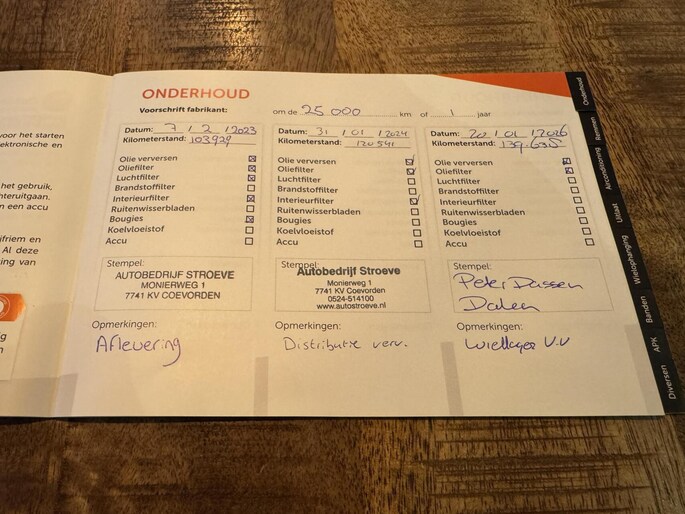 ONDERHOUD
Voorschrift fabrikant: om de 25 000 km of 1 jaar
Datum: 7 / 2 / 2023
Kilometerstand: 103929
Olie verversen
Oliefilter
Luchtfilter
Brandstoffilter
Interieurfilter
Ruitenwisserbladen
Bougies
Koelvloeistof
Accu
Stempel:
AUTOBEDRIJF STROEVE
MONIERWEG 1
7741 KV COEVORDEN
Opmerkingen:
Aflevering
Datum: 31 / 01 / 2024
Kilometerstand: 120541
Olie verversen
Oliefilter
Luchtfilter
Brandstoffilter
Interieurfilter
Ruitenwisserbladen
Bougies
Koelvloeistof
Accu
Stempel:
Autobedrijf Stroeve
Monierweg 1
7741 KV Coevorden
0524-514100
www.autostroeve.nl
Opmerkingen:
Distributie verv.
Datum: 20 / 01 / 2026
Kilometerstand: 139.635
Olie verversen
Oliefilter
Luchtfilter
Brandstoffilter
Interieurfilter
Ruitenwisserbladen
Bougies
Koelvloeistof
Accu
Stempel:
Peter Dassen
Dalen
Opmerkingen:
Wiellager V.V
Onderhoud
Remmen
Airconditioning
Uitlaat
Wielophanging
Banden
APK
Diversen
voor het starten
ektronische en
het gebruik,
hteruitgaan.
en een accu
friem en
Al deze
ing van